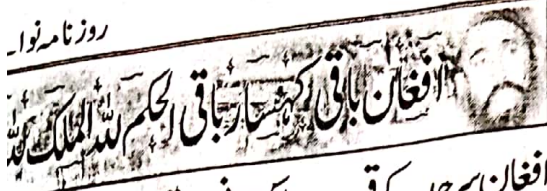 روزنامہ نوا
افغان باقی کہسار باقی الحکم للہ الملک للہ
افغان